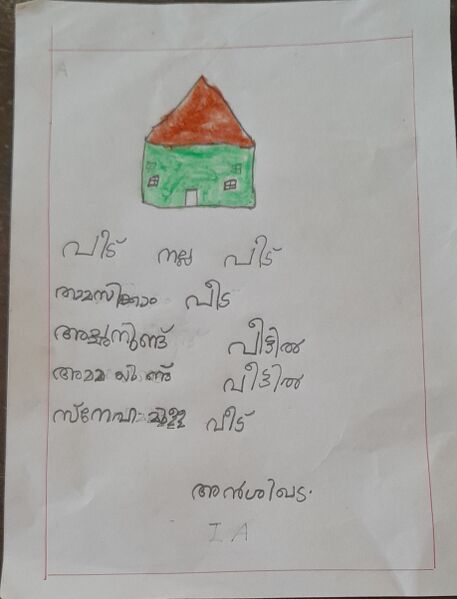 A
വീട് നല്ല വീട്
താമസിക്കാം വീട
അച്ഛനുണ്ട് വീട്ടിൽ
അമമയുണ്ട് വീട്ടിൽ
സ്നേഹമുള്ള വീട്
അൻശിഖട.
I A